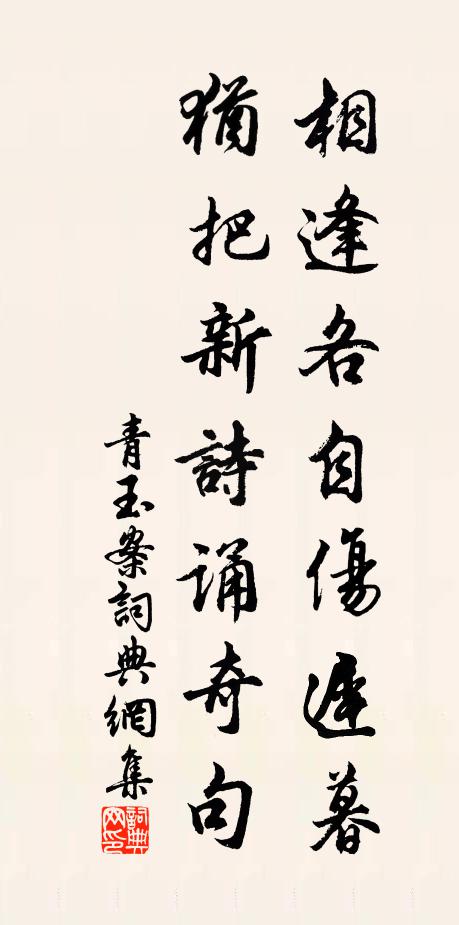 相逢各自傷遲暮
猶把新詩誦奇句
青玉案詞典網集
詞典网印